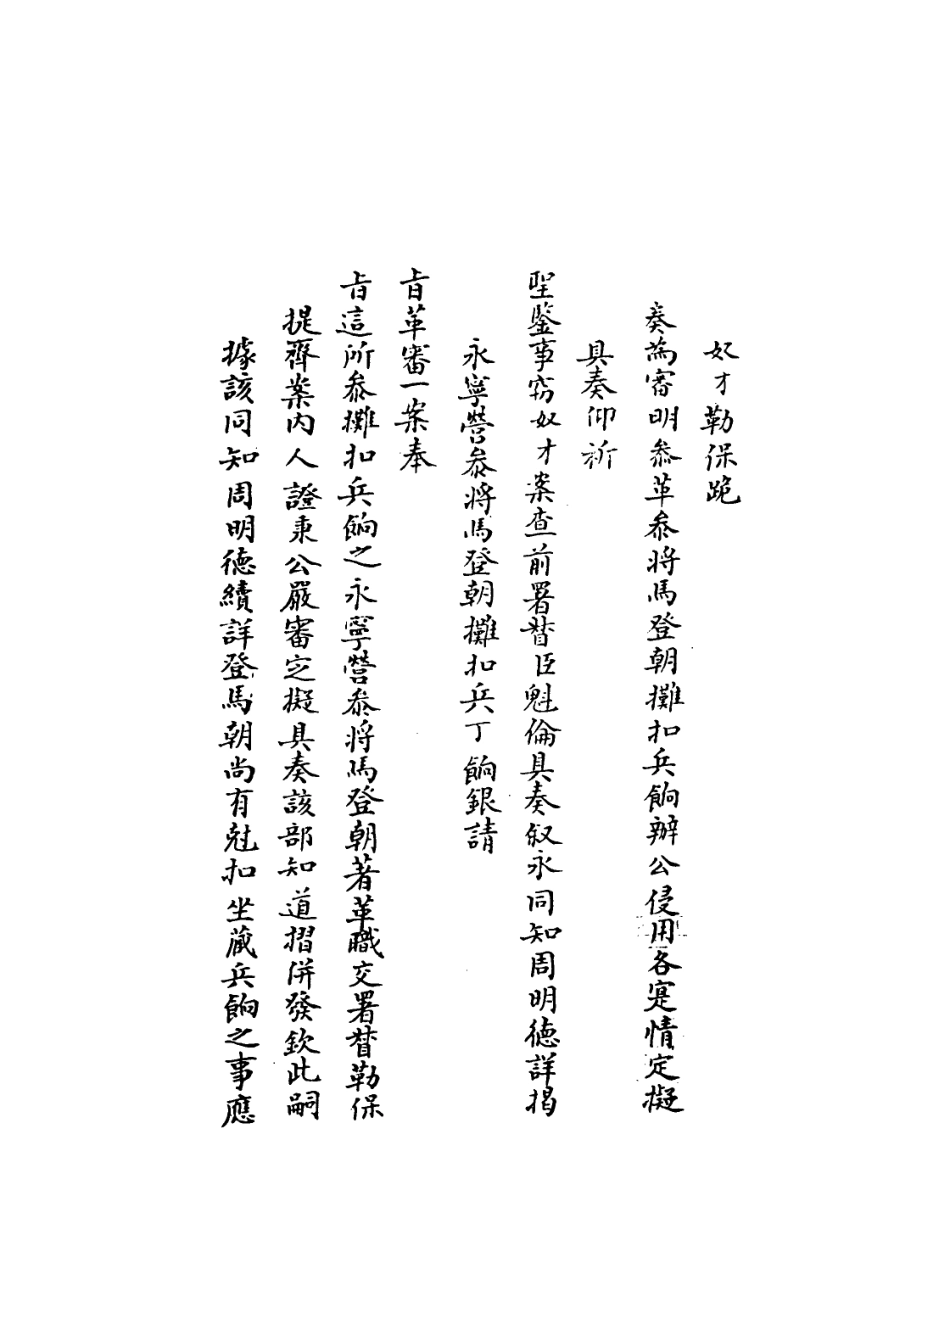 奴才勒保跪
奏為審明叅革叅将馬登朝攤扣兵餉辦公侵用各寔情定擬
具奏仰祈
聖鑒事竊奴才案查前署督臣魁倫具奏叙永同知周明德詳揭
永寧營叅将馬登朝攤扣兵丁餉銀請
旨革審一案奉
旨這所叅攤扣兵餉之永寧營叅将馬登朝著革職交署督勒保
提齊案内人證秉公嚴審定擬具奏該部知道摺併發欽此嗣
據該同知周明德續詳登馬朝尚有尅扣坐蔵兵餉之事應